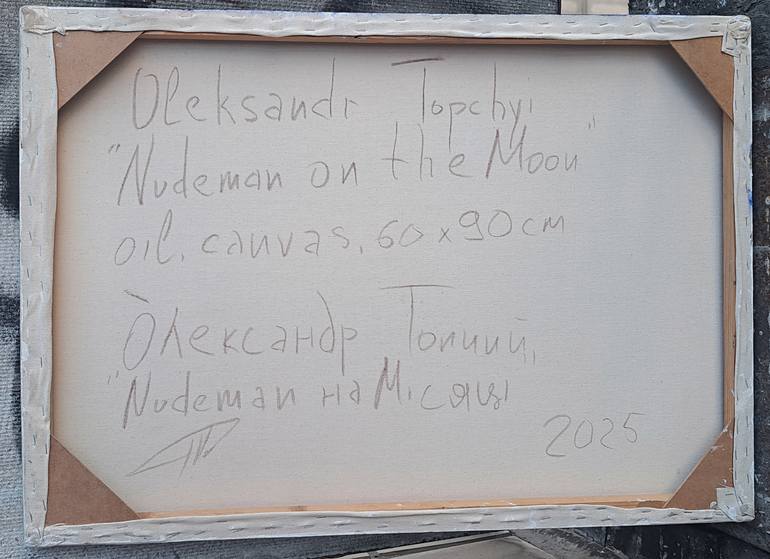 Oleksandr Topchyi
"Nudeman on the Moon"
oil, canvas, 60 x 90 cm
Олександр Топчий,
"Nudeman на Місяці
2025